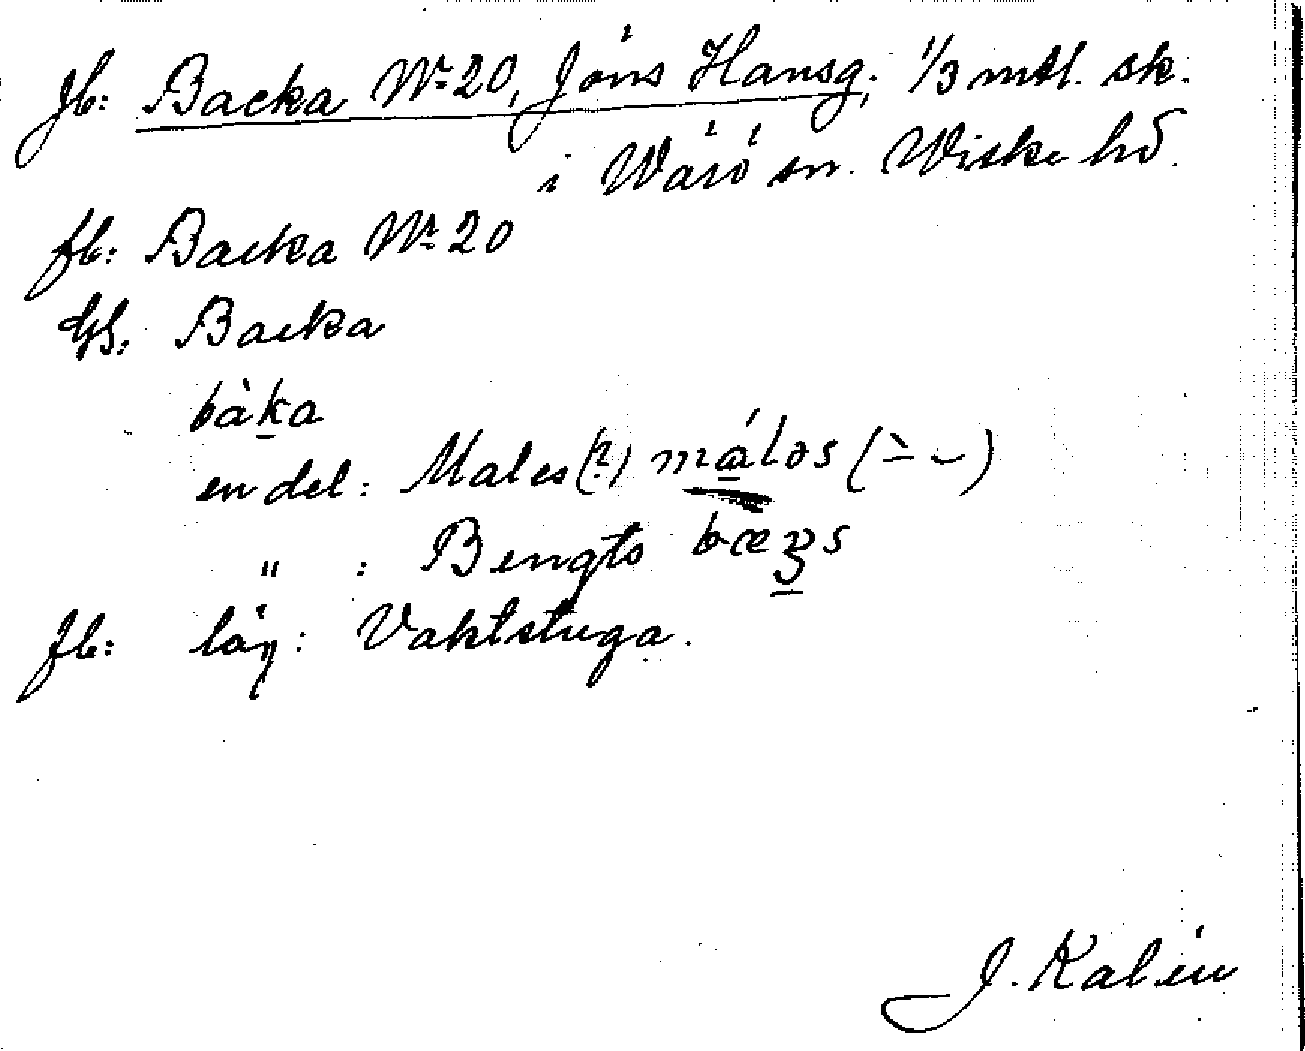 Jb: Backa Nr 20, Jöns Hansg. 1/3 mtl. sk.
i Wärö sn. Wiske hd.
fb: Backa Nr 20
Gs. Backa
bàka
en del: Males (?) máləs (
" : Bengts
fb: läg: Vaktstuga.
J. Kalén